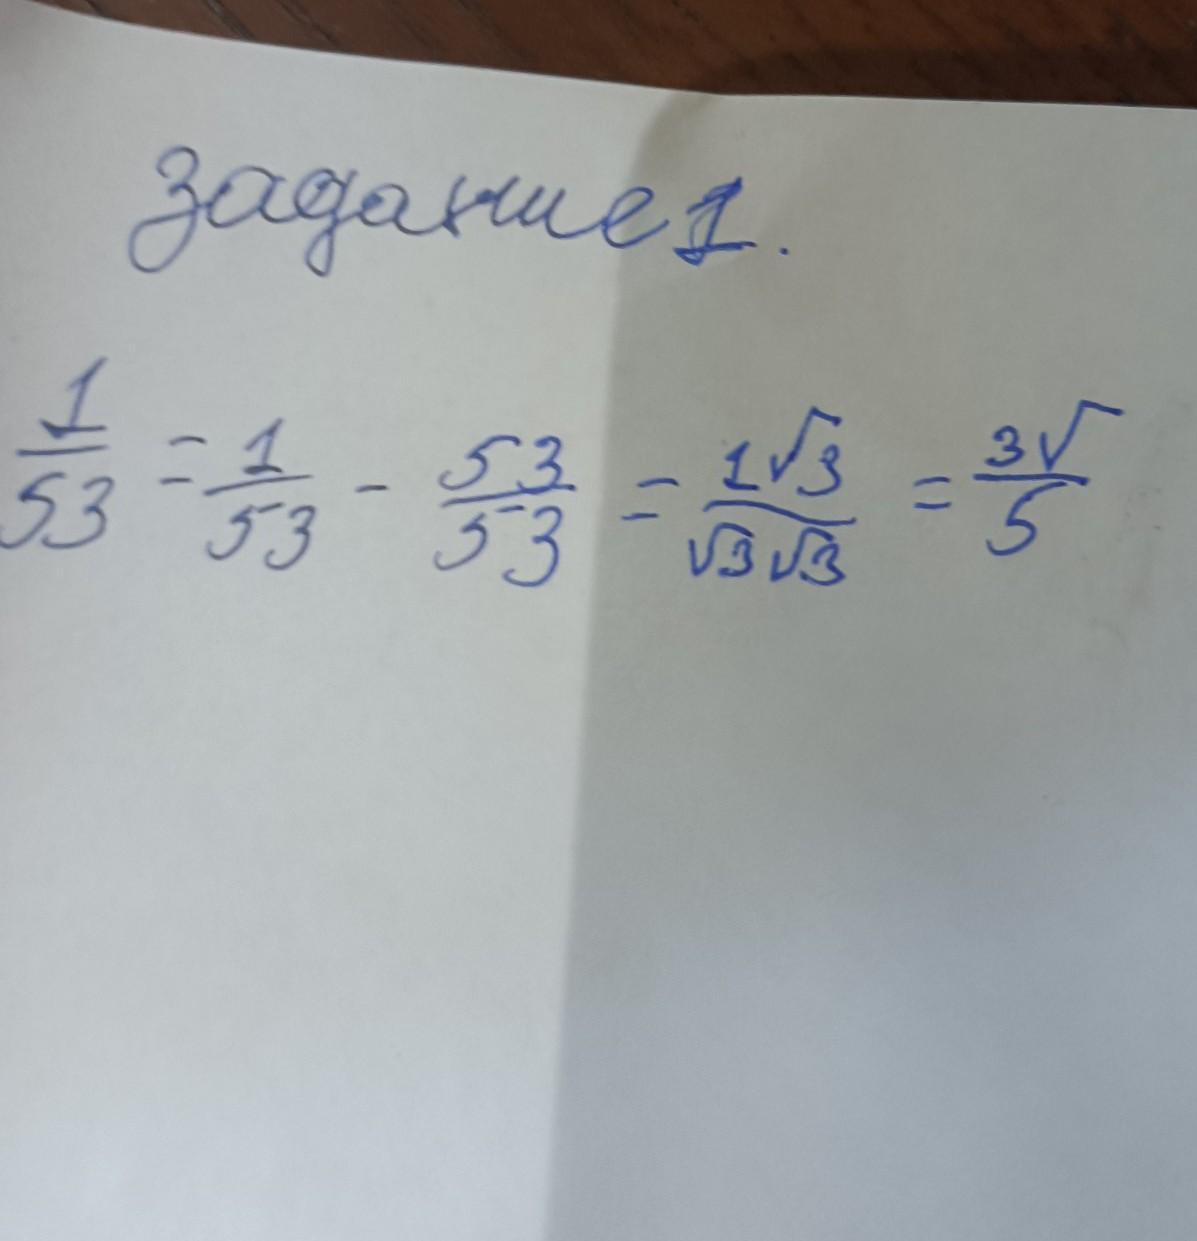 задание 1.
1/53 = 1/53 - 53/53 = 1√3/√3√3 = 3√/5